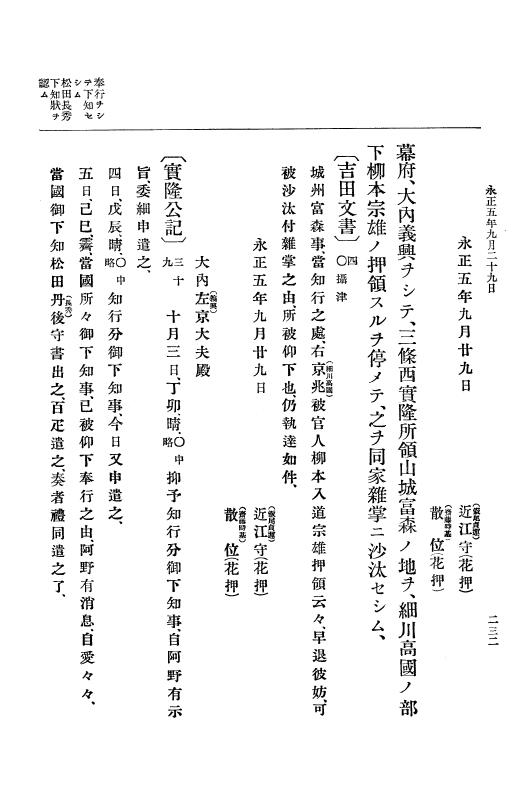 永正五年九月二十九日
二三二
永正五年九月廿九日
近江守(花押)
(飯尾貞運)
散位(花押)
(齋藤時基)
幕府、大内義興ヲシテ、三條西實隆所領山城富森ノ地ヲ、細川高國ノ部
下柳本宗雄ノ押領スルヲ停メテ、之ヲ同家雜掌ニ沙汰セシム、
〔吉田文書〕 四〇攝津
城州富森事、當知行之處、右京兆(細川高國)被官人柳本入道宗雄押領云々、早退彼妨、可
被沙汰付雜掌之由、所被仰下也、仍執達如件、
永正五年九月廿九日
近江守(花押)
(飯尾貞運)
散位(花押)
(齋藤時基)
大内左京大夫殿
(義興)
〔實隆公記〕 三十九 十月三日、丁卯、晴、〇中略 抑予知行分御下知事、自阿野有示
旨、委細申遣之、
四日、戊辰、晴、〇中略 知行分御下知事、今日又申遣之、
五日、己巳、霽、當國所々御下知事、已被仰下奉行之由、阿野有消息、自愛々々、
當國御下知松田丹後守(長秀)書出之、百疋遣之、奏者禮同遣之了、
奉行ヲシ
テ下知セ
シム
松田長秀
下知狀ヲ
認ム